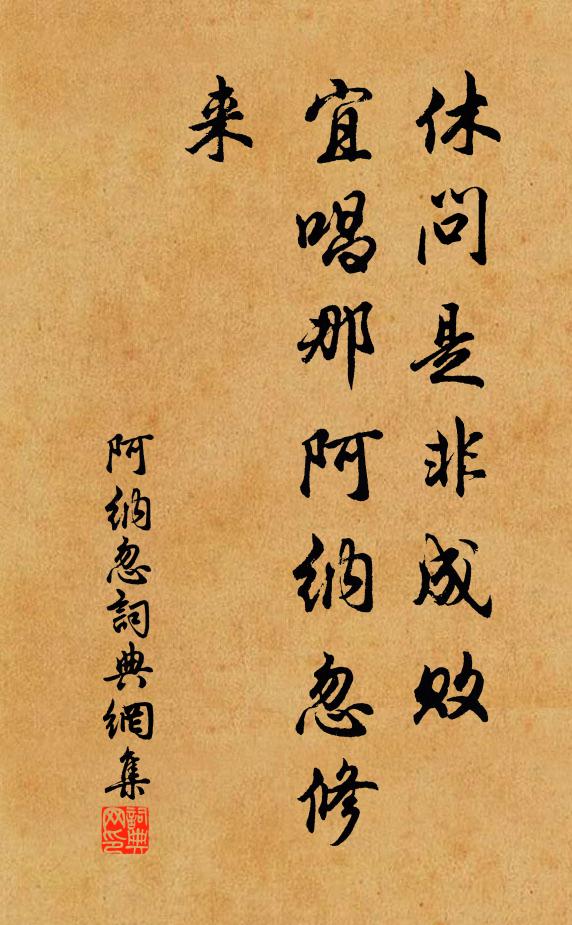 休问是非成败
宜唱那阿纳忽修
来
阿納忽詞典網集
詞典网印